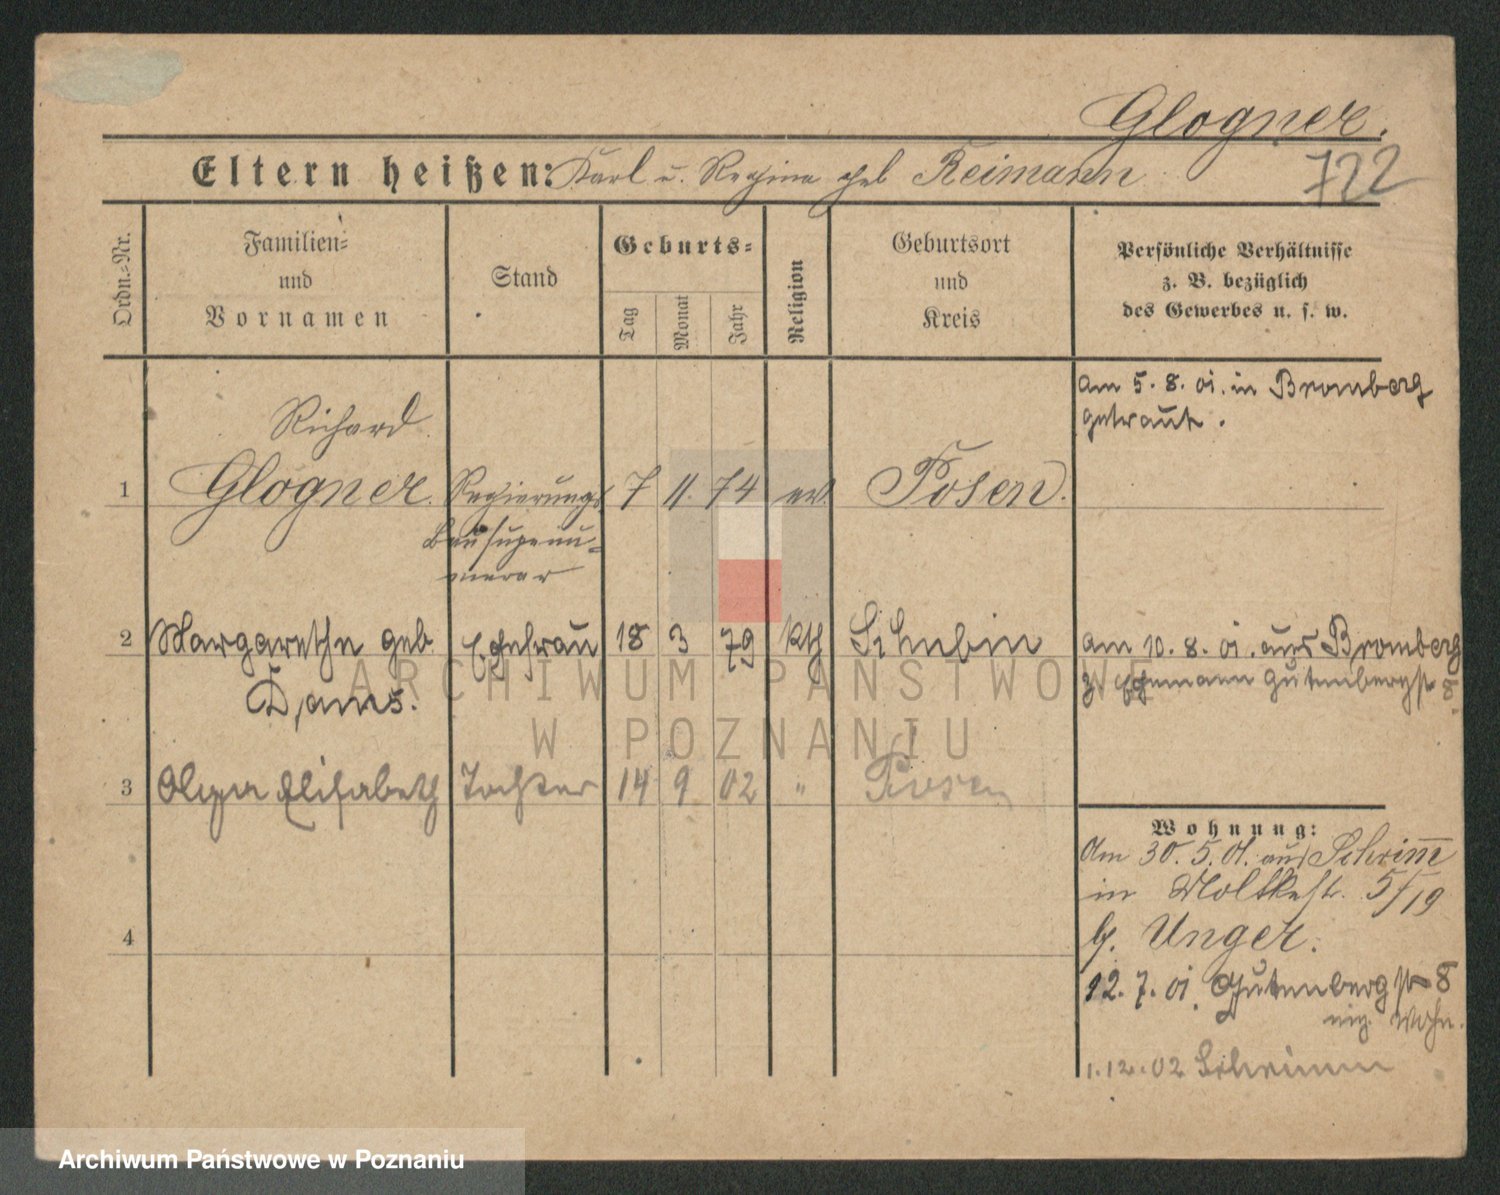 Glogner.
Eltern heißen: Karl u. Regina geb Reimann
722
Ordn.-Nr.
Familien-
und
Vornamen
Stand
Geburts-
Tag
Monat
Jahr
Religion
Geburtsort
und
Kreis
Persönliche Verhältnisse
z. B. bezüglich
des Gewerbes u. s. w.
am 5. 8. 01. in Bromberg
getraut.
Richard
1 Glogner. Regierungs 7 11. 74 ev. Posen.
Bausupernu-
merar
2 Margarethe geb Ehefrau 18 3 79 kth Schubin am 10. 8. 01. aus Bromberg
z Ehemann Gutenbergstr 8.
ARCHIWUM PAŃSTWOWE
W POZNANIU
3 Olga Elisabeth Tochter 14 9 02 " Posen
Wohnung:
Am 30. 5. 01. aus Schrimm
in Moltkestr. 5/19
b. Unger.
4
12. 7. 01. Gutenbergstr 8
eig. Wohn.
1. 12. 02 Schrimm
Archiwum Państwowe w Poznaniu